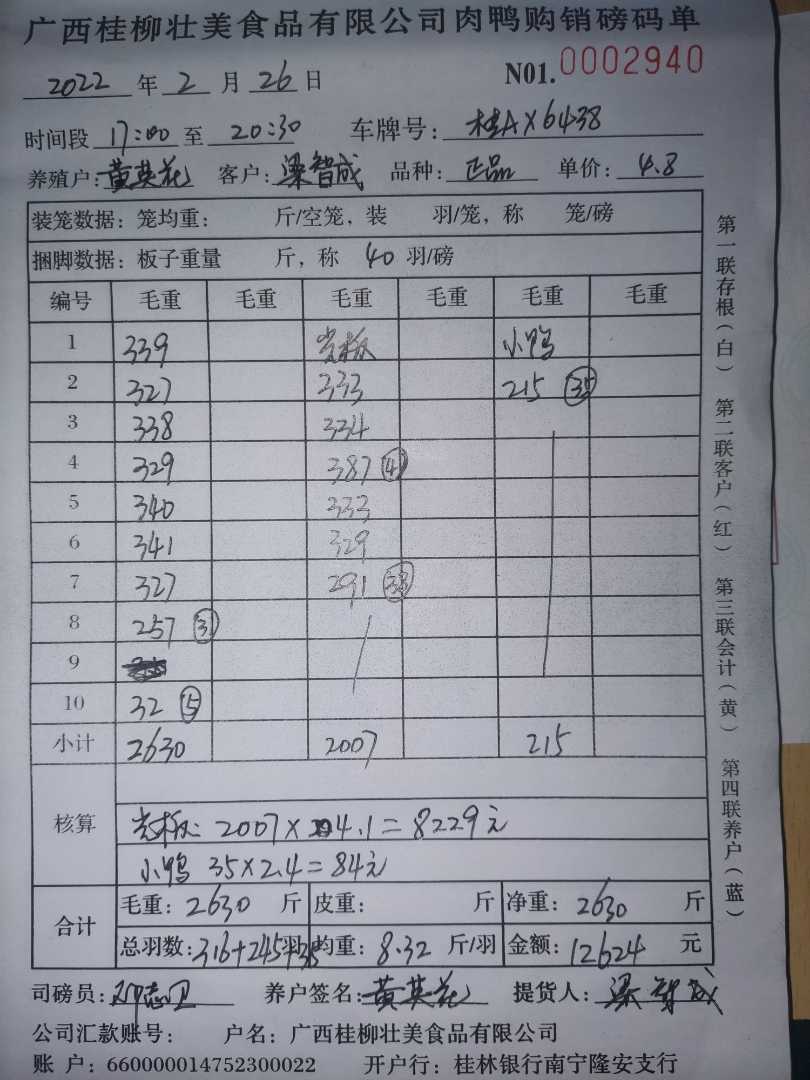 广西桂柳壮美食品有限公司肉鸭购销磅码单
2022 年 2 月 26 日 N01. 0002940
时间段 17:00 至 20:30 车牌号: 桂A X6438
养殖户: 黄英花 客户: 梁智成 品种: 正品 单价: 4.8
装笼数据: 笼均重: 斤/空笼, 装 羽/笼, 称 笼/磅
捆脚数据: 板子重量 斤, 称 40 羽/磅
编号 毛重 毛重 毛重 毛重 毛重 毛重
1 339 光板 小鸭
2 327 333 215 35
3 338 334
4 329 387
5 340 333
6 341 329
7 327 291 38
8 257 31
9
10 32 5
小计 2630 2007 215
核算
光板: 2007×4.1=8229元
小鸭 35×2.4=84元
合计
毛重: 2630 斤 皮重: 斤 净重: 2630 斤
总羽数: 316+245+35 羽 均重: 8.32 斤/羽 金额: 12624 元
司磅员: 养户签名: 黄英花 提货人: 梁智成
公司汇款账号: 户名: 广西桂柳壮美食品有限公司
账 户: 660000014752300022 开户行: 桂林银行南宁隆安支行
第一联存根(白) 第二联客户(红) 第三联会计(黄) 第四联养户(蓝)